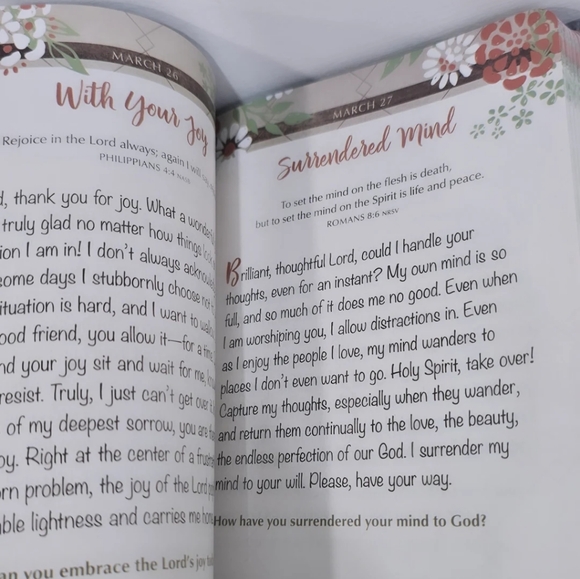 MARCH 26
With Your Joy
Rejoice in the Lord always; again I will
PHILIPPIANS 4:4 NASB
thank you for joy. What a wonderful
truly glad no matter how things
I am in! I don't always
some days I stubbornly choose
situation is hard, and I want to
good friend, you allow it—for a time,
and your joy sit and wait for me,
resist. Truly, I just can't get over
of my deepest sorrow, you are
joy. Right at the center of a
problem, the joy of the Lord
lightness and carries me
can you embrace the Lord's joy
MARCH 27
Surrendered Mind
To set the mind on the flesh is death,
but to set the mind on the Spirit is life and peace.
ROMANS 8:6 NRSV
Brilliant, thoughtful Lord, could I handle your
thoughts, even for an instant? My own mind is so
full, and so much of it does me no good. Even when
I am worshiping you, I allow distractions in. Even
as I enjoy the people I love, my mind wanders to
places I don't even want to go. Holy Spirit, take over!
Capture my thoughts, especially when they wander,
and return them continually to the love, the beauty,
the endless perfection of our God. I surrender my
mind to your will. Please, have your way.
How have you surrendered your mind to God?